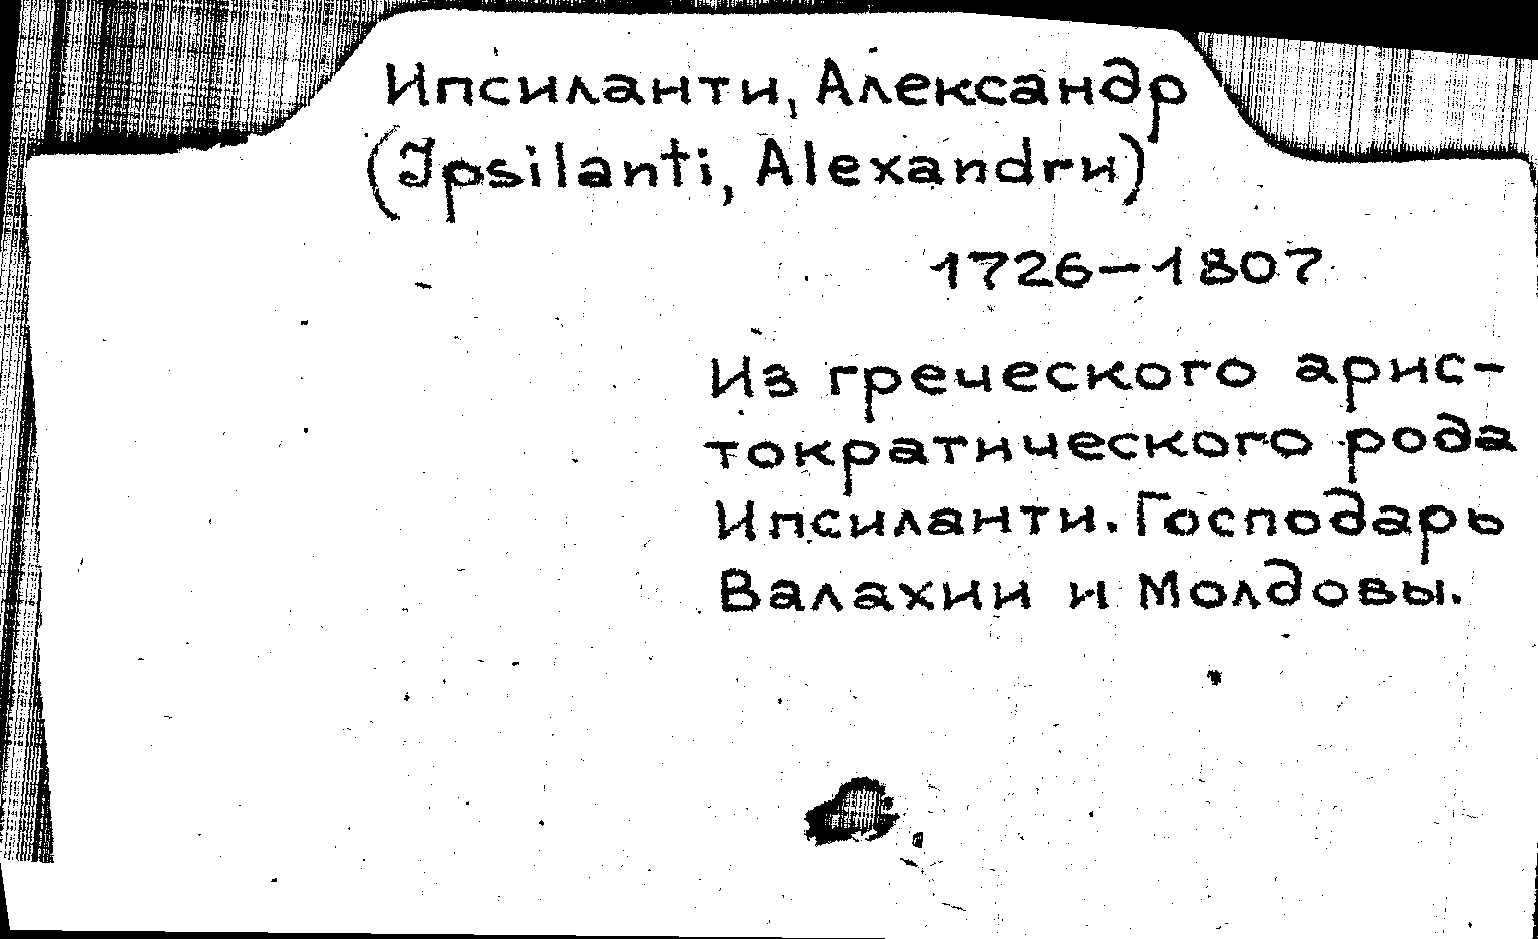 Ипсиланти, Александр
(Ipsilanti, Alexandru)
1726–1807
Из греческого арис-
тократического рода
Ипсиланти. Господарь
Валахии и Молдовы.